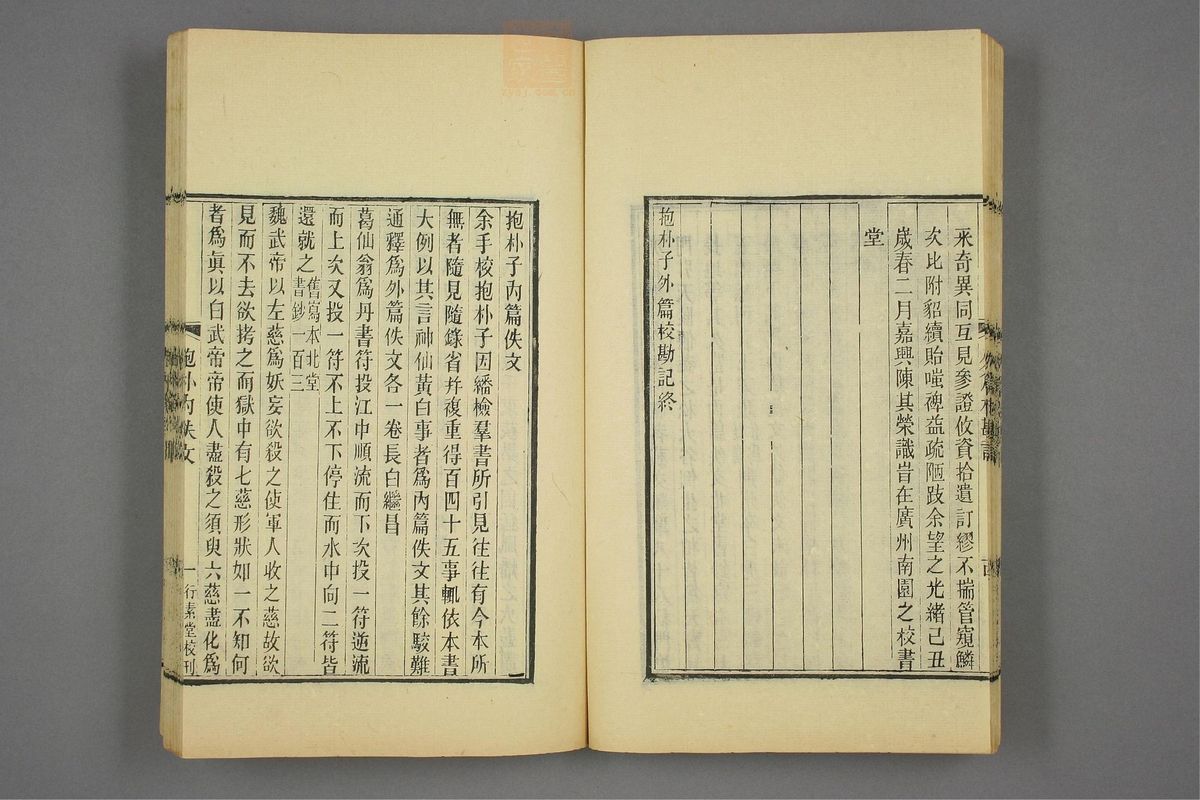 釆奇異同互見參證攸資拾遺訂繆不揣管窺鱗
次比附貂續貽嗤稗益疏陋跂余望之光緒己丑
歲春二月嘉興陳其榮識旹在廣州南園之校書
堂
抱朴子外篇校勘記終
抱朴子內篇佚文
余手校抱朴子因繙檢羣書所引見往往有今本所
無者隨見隨錄省并複重得百四十五事輒依本書
大例以其言神仙黃白事者爲內篇佚文其餘駮難
通釋爲外篇佚文各一卷長白繼昌
葛仙翁爲丹書符投江中順流而下次投一符逆流
而上次又投一符不上不下停住而水中向二符皆
還就之舊寫本北堂書鈔一百三
魏武帝以左慈爲妖妄欲殺之使軍人收之慈故欲
見而不去欲拷之而獄中有七慈形狀如一不知何
者爲眞以白武帝帝使人盡殺之須臾六慈盡化爲
抱朴內佚文
一
行素堂校刊